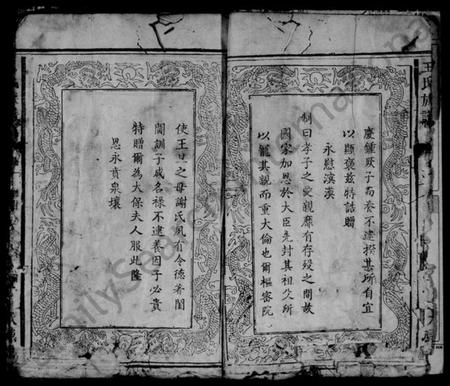 慶鍾厥子而養不逮揆其所自宜
以顯褒兹特誥贈
永慰濱漠
制曰孝子之愛親靡有存歿之間故
國家加恩於大臣先封其祖父所
以寵其親而重大倫也爾樞密院
使王旦之母謝氏夙有令德著聞
閫訓子成名祿不逮養因子必貴
特贈爾為太保夫人服此隆
恩永賁泉壤
王氏族譜